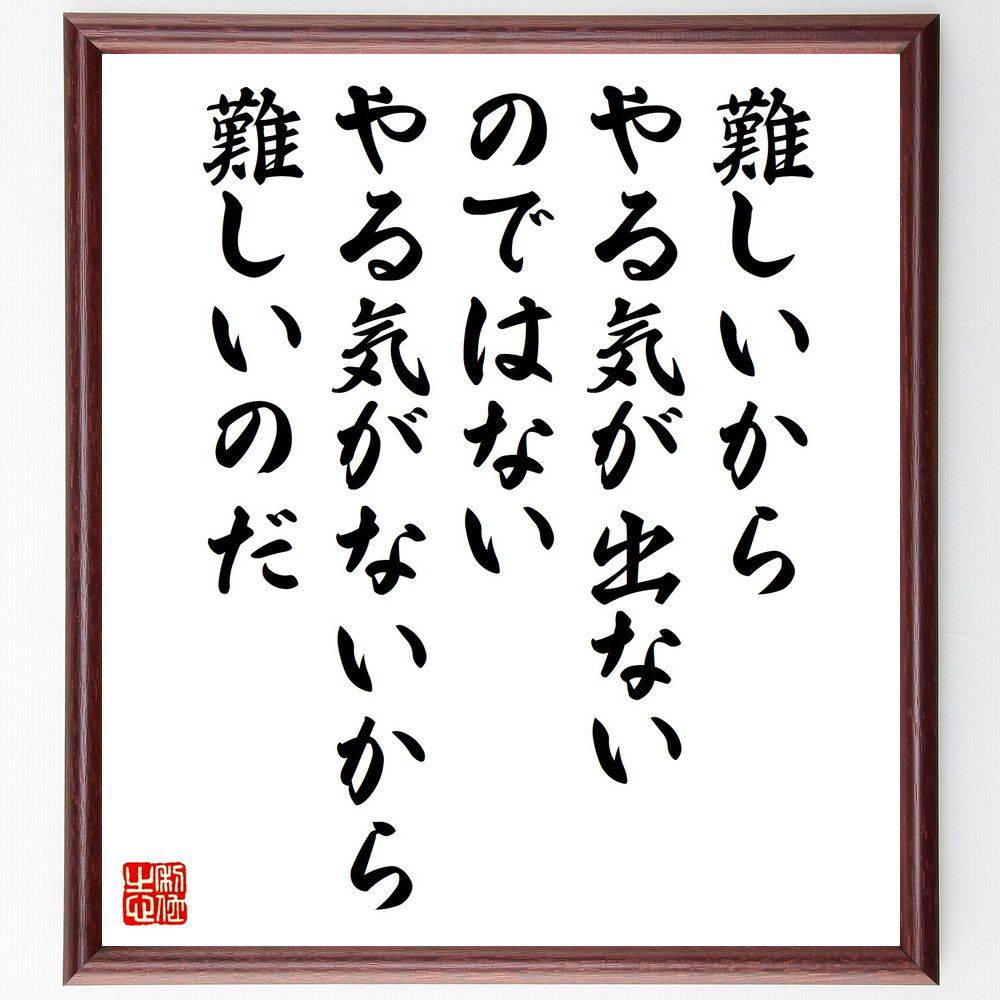 難しいから
やる気が出ない
のではない
やる気がないから
難しいのだ